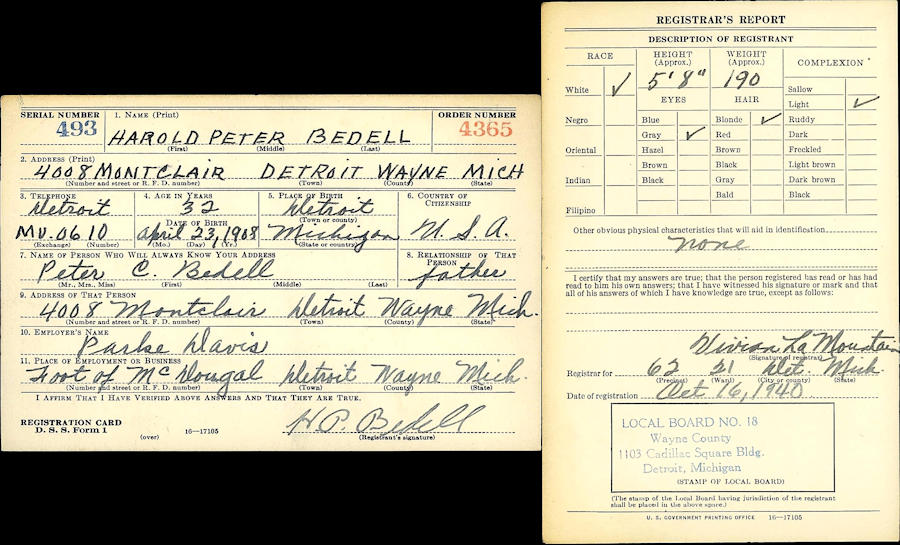 SERIAL NUMBER 1. NAME (Print) ORDER NUMBER
493 HAROLD PETER BEDELL 4365
(First) (Middle) (Last)
2. ADDRESS (Print)
4008 MONTCLAIR DETROIT WAYNE MICH
(Number and street or R. F. D. number) (Town) (County) (State)
3. TELEPHONE 4. AGE IN YEARS 5. PLACE OF BIRTH 6. COUNTRY OF CITIZENSHIP
Detroit 32 Detroit
DATE OF BIRTH (Town or county)
MU. 0610 April 23, 1908 Michigan U. S. A.
(Exchange) (Number) (Mo.) (Day) (Yr.) (State or country)
7. NAME OF PERSON WHO WILL ALWAYS KNOW YOUR ADDRESS 8. RELATIONSHIP OF THAT PERSON
Peter C. Bedell father
(Mr., Mrs., Miss) (First) (Middle) (Last)
9. ADDRESS OF THAT PERSON
4008 Montclair Detroit Wayne Mich.
(Number and street or R. F. D. number) (Town) (County) (State)
10. EMPLOYER'S NAME
Parke Davis
11. PLACE OF EMPLOYMENT OR BUSINESS
Foot of McDougal Detroit Wayne Mich.
(Number and street or R. F. D. number) (Town) (County) (State)
I AFFIRM THAT I HAVE VERIFIED ABOVE ANSWERS AND THAT THEY ARE TRUE.
H. P. Bedell
REGISTRATION CARD
D. S. S. Form 1 (over) 16—17105 (Registrant's signature)
REGISTRAR'S REPORT
DESCRIPTION OF REGISTRANT
RACE HEIGHT (Approx.) WEIGHT (Approx.) COMPLEXION
White ✓ 5' 8" 190 Sallow
EYES HAIR Light ✓
Negro Blue Blonde ✓ Ruddy
Gray ✓ Red Dark
Oriental Hazel Brown Freckled
Brown Black Light brown
Indian Black Gray Dark brown
Bald Black
Filipino
Other obvious physical characteristics that will aid in identification
none
I certify that my answers are true; that the person registered has read or has had
read to him his own answers; that I have witnessed his signature or mark and that
all of his answers of which I have knowledge are true, except as follows:
Vivian La Mountain
(Signature of registrar)
Registrar for 62 21 Det. Mich.
(Precinct) (Ward) (City or county) (State)
Date of registration Oct 16, 1940
LOCAL BOARD NO. 18
Wayne County
1103 Cadillac Square Bldg.
Detroit, Michigan
(STAMP OF LOCAL BOARD)
(The stamp of the Local Board having jurisdiction of the registrant
shall be placed in the above space.)
U. S. GOVERNMENT PRINTING OFFICE 16—17105